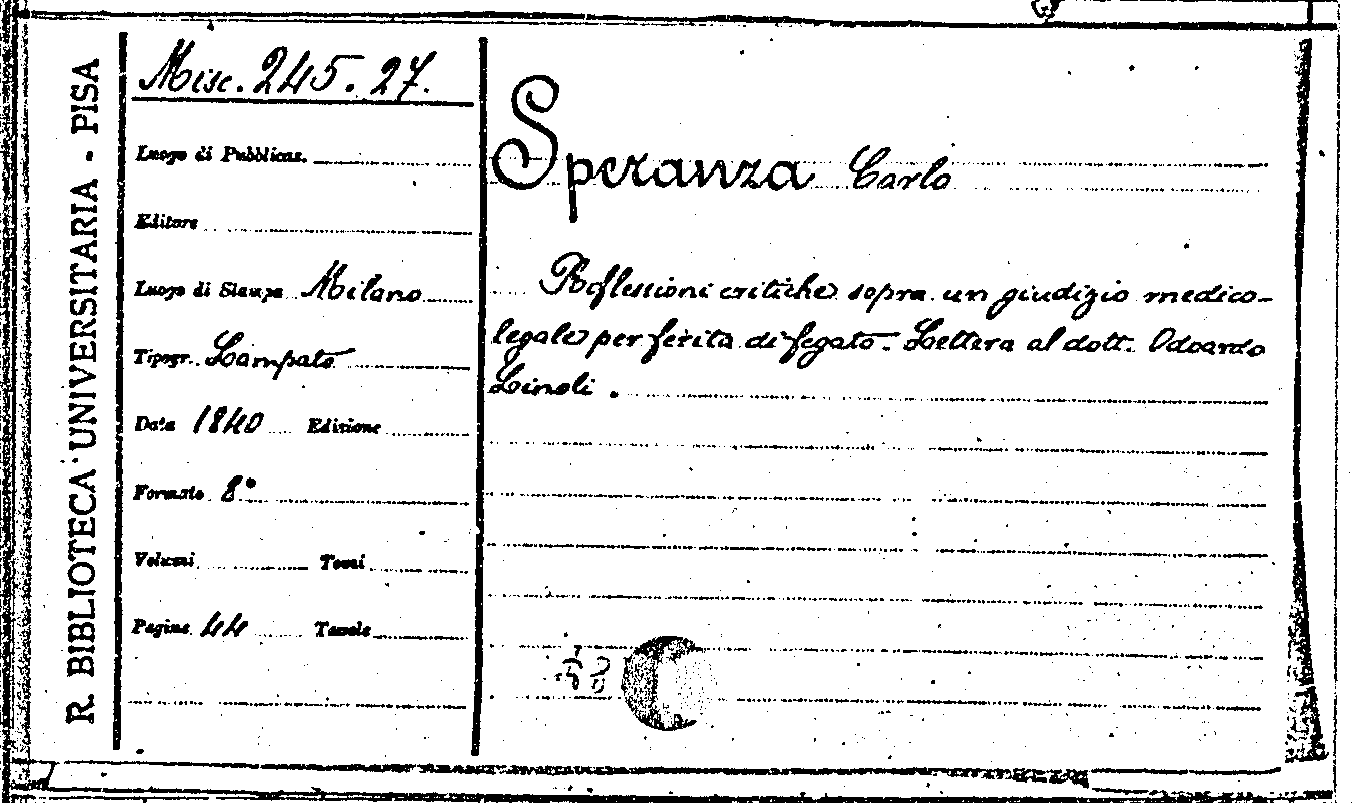 R. BIBLIOTECA UNIVERSITARIA - PISA
Misc. 245. 27.
Luogo di Pubblicaz.
Editore
Luogo di Stampa Milano
Tipogr. Lampato
Data 1840 Edizione
Formato 8°
Volumi Tomi
Pagine 44 Tavole
Speranza Carlo
Riflessioni critiche sopra un giudizio medico-
legale per ferita di fegato. Lettera al dott. Odoardo
Linoli.